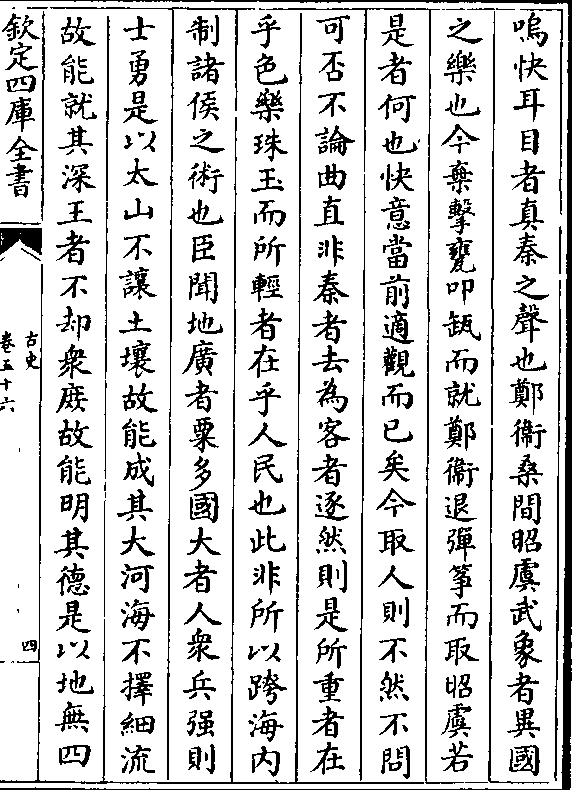 嗚快耳目者真秦之聲也鄭衞桑間昭虞武象者異國
之樂也今棄擊甕叩缻而就鄭衞退彈箏而取昭虞若
是者何也快意當前適觀而已矣今取人則不然不問
可否不論曲直非秦者去為客者逐然則是所重者在
乎色樂珠玉而所輕者在乎人民也此非所以跨海内
制諸侯之術也臣聞地廣者粟多國大者人衆兵强則
士勇是以太山不讓土壤故能成其大河海不擇細流
故能就其深王者不却衆庶故能明其德是以地無四
欽定四庫全書
古史
卷五十六
四